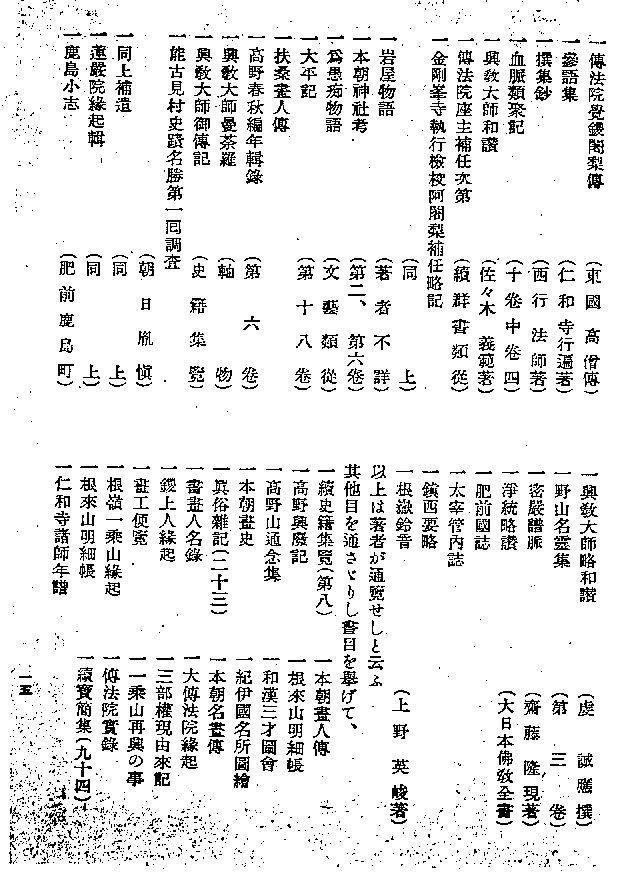 一傳法院覺鑁阿闍梨傳　（東國高僧傳）
一參語集　（仁和寺行遍著）
一撰集鈔　（西行法師著）
一血脈類聚記　（十卷中卷四）
一興教大師和讚　（佐々木義範著）
一傳法院座主補任次第　（續群書類從）
一金剛峯寺執行檢校阿闍梨補任略記
一岩屋物語　（同上）
一本朝神社考　（著者不詳）
一爲愚痴物語　（第二、第六卷）
一大年記　（文藝類從）
一扶桑畫人傳　（第十八卷）
一高野春秋編年輯錄
一興教大師曼荼羅　（第六卷）
一興教大師御傳記　（軸物）
一能古見村史蹟名勝第一囘調査　（史籍集覽）
一同上補遺　（朝日胤愼）
一蓮嚴院緣起輯　（同上）
一鹿島小志　（同上）
（肥前鹿島町）
一興教大師略和讚　（虔誠應撰）
一野山名靈集　（第三卷）
一密嚴譜脈　（齋藤隆現著）
一淨統略讚　（大日本佛教全書）
一肥前國誌
一太宰管內誌
一鎭西要略
一根嶽鈴音　（上野英峻著）
以上は著者が通覽せしと云ふ
其他目を通さゞりし書目を擧げて、
一續史籍集覽（第八）　一本朝畫人傳
一高野興廢記　一根來山明細帳
一高野山通念集　一和漢三才圖會
一本朝畫史　一紀伊國名所圖繪
一眞俗雜記（二十三）　一本朝名畫傳
一書畫人名錄　一大傳法院緣起
一鑁上人緣起　一三部權現由來記
一畫工便覽　一一乘山再興の事
一根嶺一乘山緣起　一傳法院實錄
一根來山明細帳　一續寶簡集（九十四）
一仁和寺諸師年譜
一五